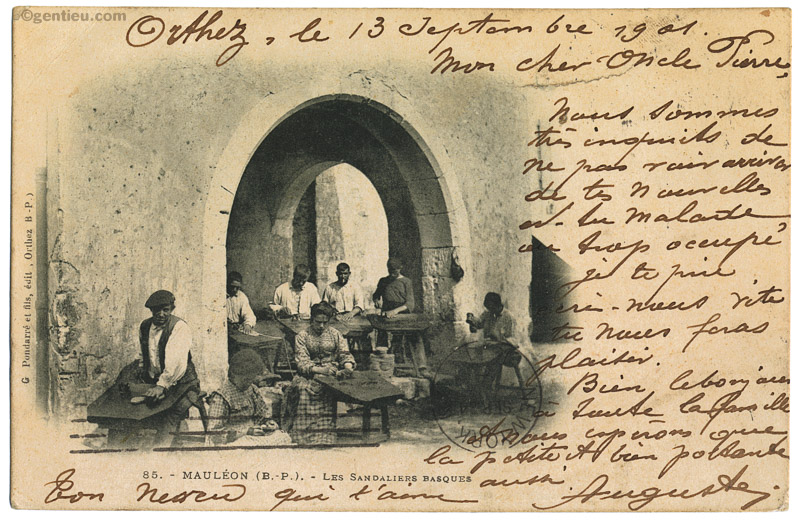 ©gentieu.com
Orthez, le 13 Septembre 1901.
Mon cher Oncle Pierre,
Nous sommes
très inquiets de
ne pas voir arriver
de tes Nouvelles
es-tu Malade
ou trop occupé
je te prie
écris-nous vite
tu nous feras
plaisir.
Bien le bonjour
à toute la famille
et nous espérons que
la petite est bien portante
aussi.
Ton Neveu qui t'aime
Auguste.
G Pondarré et fils, édit., Orthez B-P.)
85. - MAULÉON (B.-P.). - LES SANDALIERS BASQUES